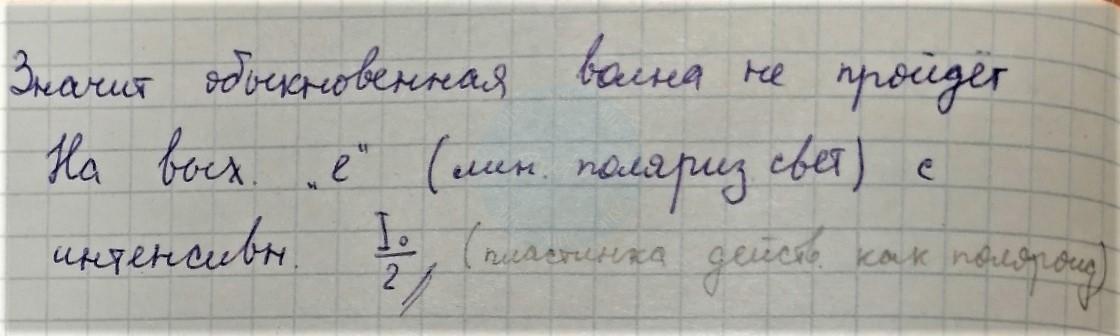 Значит обыкновенная волна не пройдёт
На вых. „е" (лин. поляриз свет) с
интенсивн. I₀/2, (пластинка действ. как поляроид)